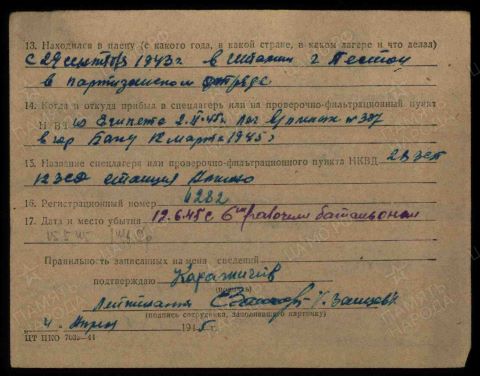 13. Находился в плену (с какого года, в какой стране, в каком лагере и что делал)
С 29 сентября 1943 г в Италии г
в партизанском отряде
14. Когда и откуда прибыл в спецлагерь или на проверочно-фильтрационный пункт
НКВД из Египета 2.II.45г. лаг № 307
в гор Баку 12 марта 1945 г
15. Название спецлагеря или проверочно-фильтрационного пункта НКВД 28 зсп
12 зсд станция
16. Регистрационный номер 6282
17. Дата и место убытия 12.6.45 с 6м рабочим батальоном
Правильность записанных на меня сведений
подтверждаю
(подпись)
Лейтенант
(подпись сотрудника, заполнявшего карточку)
1945 г.
ЦТ НКО 7035—44